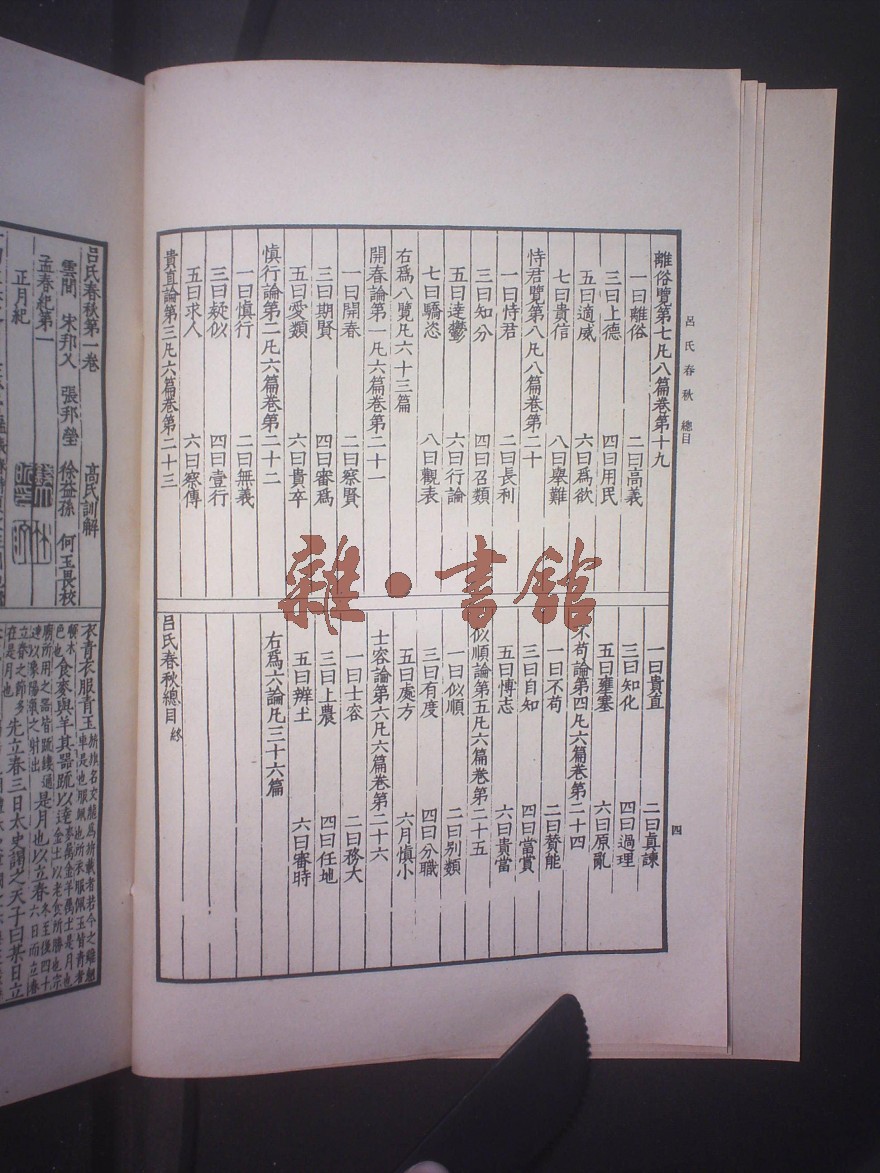 呂氏春秋 總目
四
離俗覽第七凡八篇卷第十九
一曰離俗 二曰高義
三曰上德 四曰用民
五曰適威 六曰爲欲
七曰貴信 八曰舉難
恃君覽第八凡八篇卷第二十
一曰恃君 二曰長利
三曰知分 四曰召類
五曰達鬱 六曰行論
七曰驕恣 八曰觀表
右爲八覽凡六十三篇
開春論第一凡六篇卷第二十一
一曰開春 二曰察賢
三曰期賢 四曰審爲
五曰愛類 六曰貴卒
愼行論第二凡六篇卷第二十二
一曰愼行 二曰無義
三曰疑似 四曰壹行
五曰求人 六曰察傳
貴直論第三凡六篇卷第二十三
一曰貴直 二曰真諫
三曰知化 四曰過理
五曰壅塞 六曰原亂
不苟論第四凡六篇卷第二十四
一曰不苟 二曰賛能
三曰自知 四曰當賞
五曰愽志 六曰貴當
似順論第五凡六篇卷第二十五
一曰似順 二曰别類
三曰有度 四曰分職
五曰處方 六月愼小
士容論第六凡六篇卷第二十六
一曰士容 二曰務大
三曰上農 四曰任地
五曰辨土 六曰審時
右爲六論凡三十六篇
呂氏春秋總目 終
雜·書館
呂氏春秋第一卷 高氏訓解
雲間 宋邦乂 張邦瑩 徐益孫 何玉畏校
孟春紀第一
正月紀
衣青衣服青玉
食麥與羊其器疏以達
是月也以立春
先立春三日太史謁之天子曰某日立